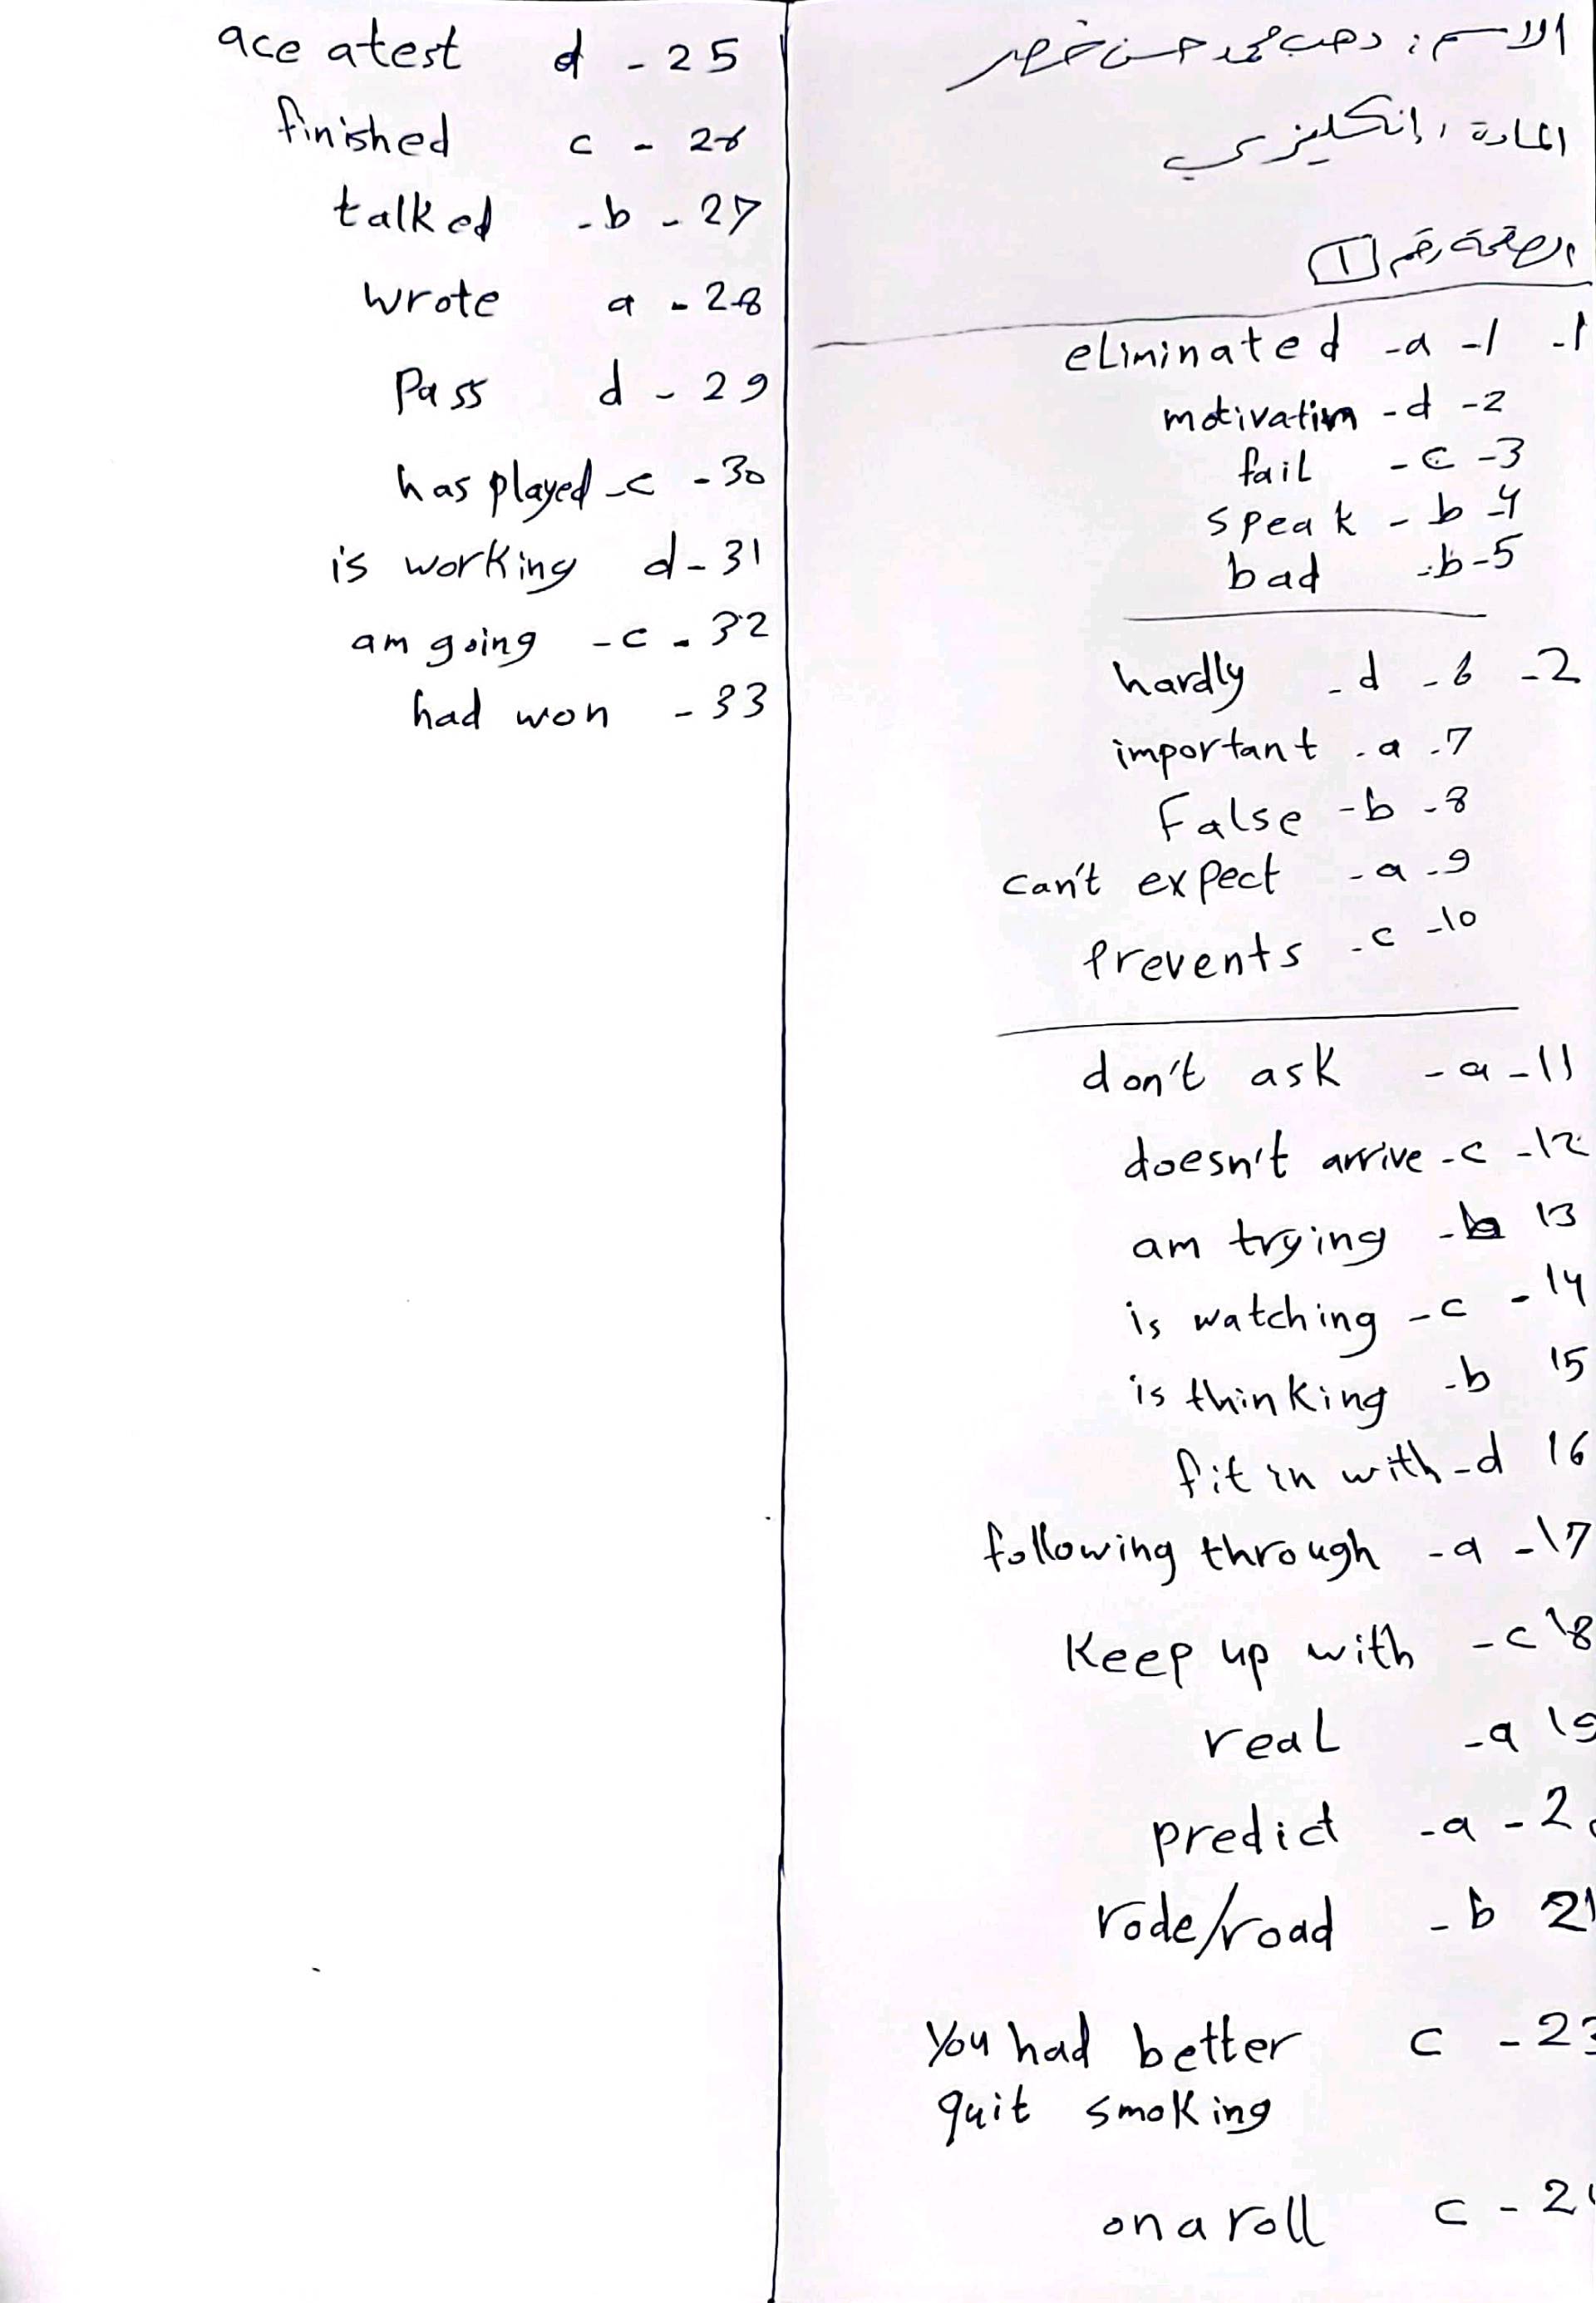 الاسم: وهب محمد حسن خضر
المادة: إنكليزي
الصفحة رقم 1
1- 1- a- eliminated
2- d- motivation
3- c- fail
4- b- speak
5- b- bad
2- 6- d- hardly
7- a- important
8- b- False
9- a- can't expect
10- c- Prevents
11- a- don't ask
12- c- doesn't arrive
13 b- am trying
14- c- is watching
15 b- is thinking
16 d- fit in with
17- a- following through
18 c- Keep up with
19 a- real
20- a- predict
21 b- rode/road
23- c You had better
quit smoking
24- c on a roll
25- d ace atest
26- c finished
27- b- talked
28- a wrote
29- d Pass
30- c- has played
31- d is working
32- c- am going
33- had won